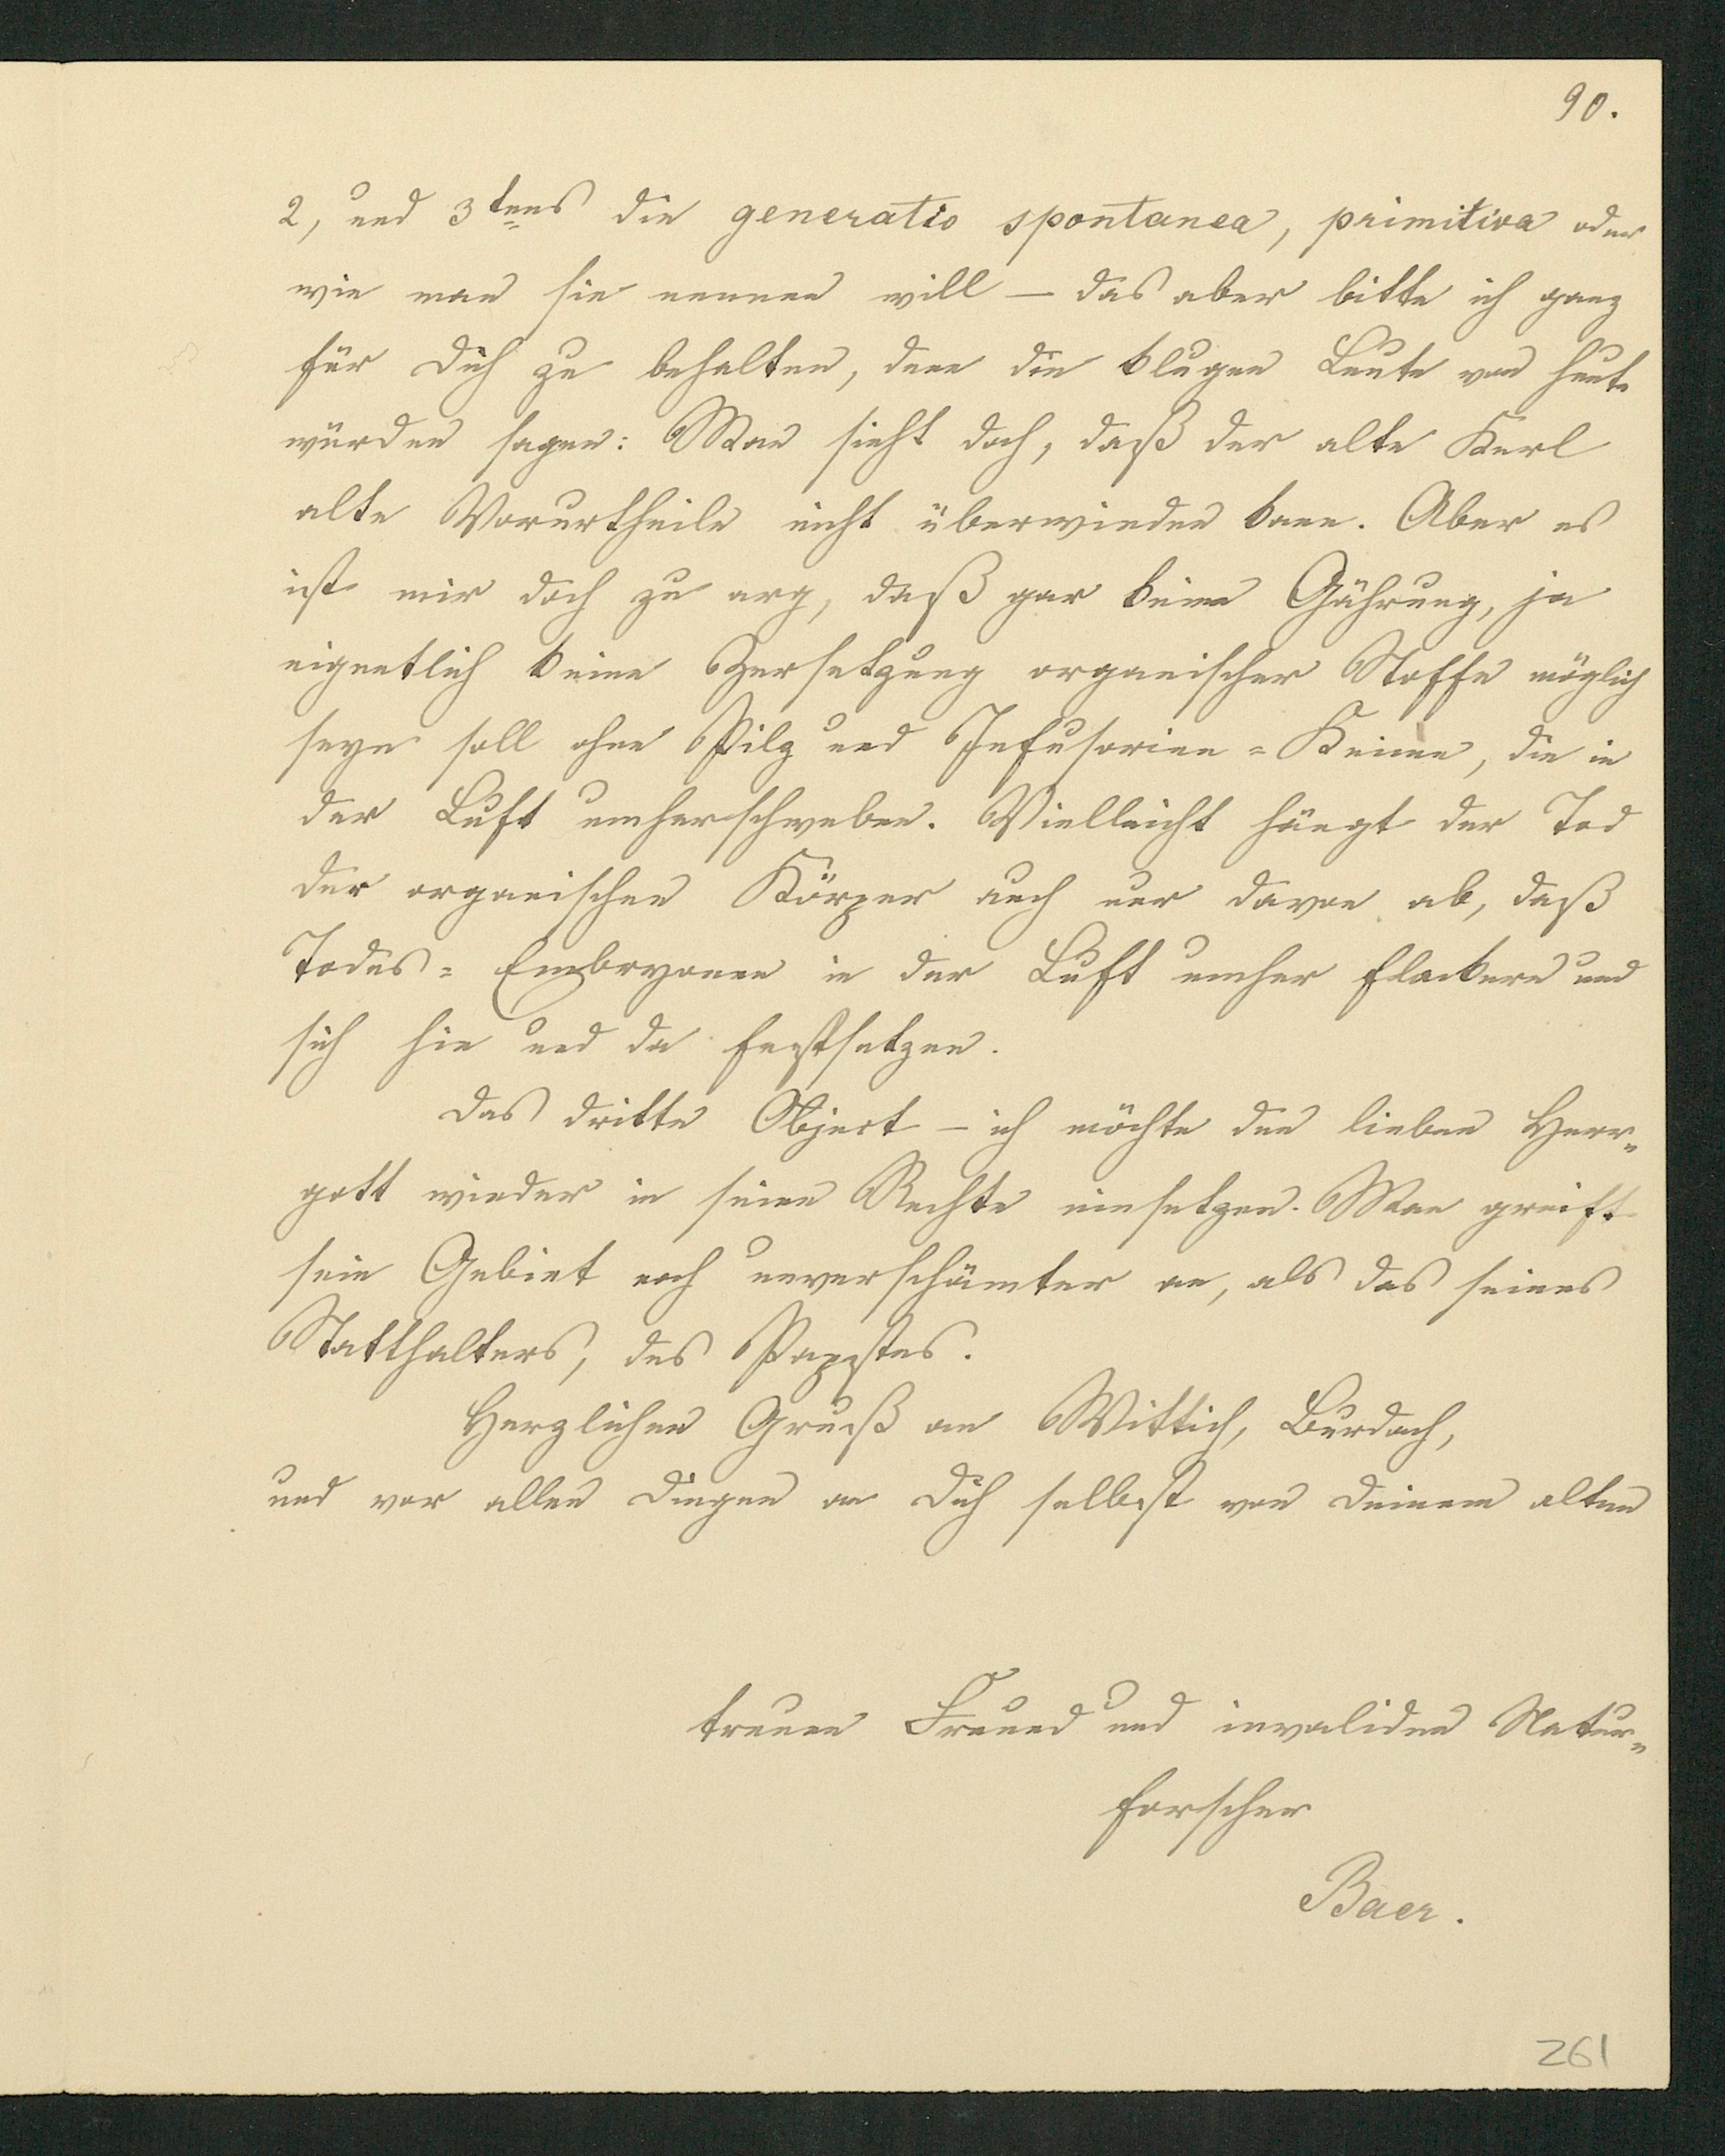 90.
2, und 3tens die generatio spontanea, primitiva oder
wie man sie nennen will — das aber bitte ich ganz
für Dich zu behalten, denn die klugen Leute von heute
würden sagen: Man sieht doch, daß der alte Kerl
alte Vorurtheile nicht überwinden kann. Aber es
ist mir doch zu arg, daß gar keine Gährung, ja
eigentlich keine Zersetzung organischer Stoffe möglich
seyn soll ohne Pilz und Infusorien=Keime, die in
der Luft umherschweben. Vielleicht hängt der Tod
der organischen Körper auch nur davon ab, daß
Todes=Embryonen in der Luft umher flackern und
sich hie und da festsetzen.
Das dritte Object – ich möchte den lieben Herr=
gott wieder in seine Rechte einsetzen. Man greift
sein Gebiet noch unverschämter an, als das seines
Statthalters, des Papstes.
Herzlichen Gruß an Wittich, Burdach,
und vor allen Dingen an Dich selbst von Deinem alten
treuen Freund und invaliden Natur=
forscher
Baer.
261